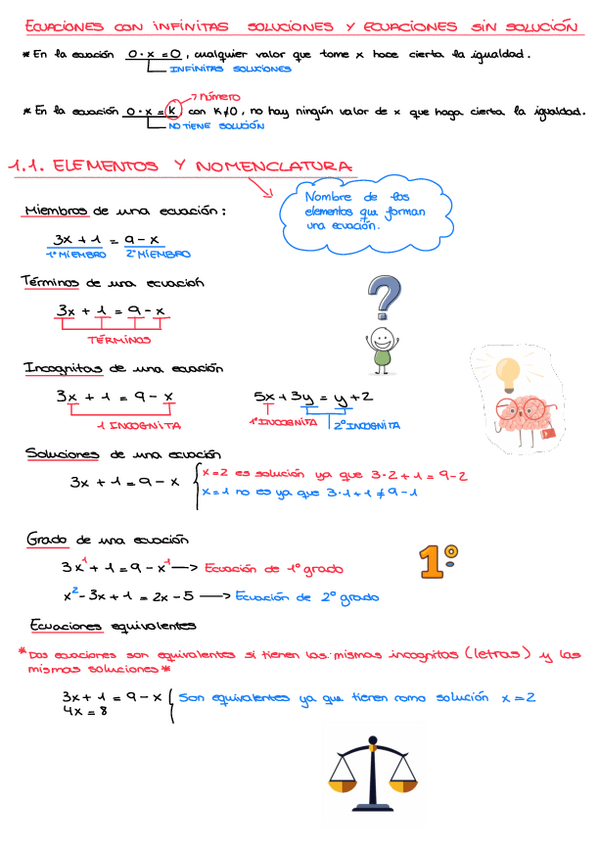 ECUACIONES CON INFINITAS SOLUCIONES Y ECUACIONES SIN SOLUCIÓN
* En la ecuación 0·x=0, cualquier valor que tome x hace cierta la igualdad.
INFINITAS SOLUCIONES
número
* En la ecuación 0·x=K con K≠0, no hay ningún valor de x que haga cierta la igualdad.
NO TIENE SOLUCIÓN
1.1. ELEMENTOS Y NOMENCLATURA
Nombre de los
elementos que forman
una ecuación.
Miembros de una ecuación:
3x + 1 = 9 - x
1º MIEMBRO 2º MIEMBRO
Términos de una ecuación
3x + 1 = 9 - x
TÉRMINOS
?
Incognitas de una ecuación
3x + 1 = 9 - x 5x + 3y = y + 2
1 INCOGNITA 1ª INCOGNITA 2ª INCOGNITA
Soluciones de una ecuación
3x + 1 = 9 - x
x=2 es solución ya que 3·2+1=9-2
x=1 no es ya que 3·1+1≠9-1
Grado de una ecuación
1º
3x¹ + 1 = 9 - x¹ → Ecuación de 1º grado
x² - 3x + 1 = 2x - 5 → Ecuación de 2º grado
Ecuaciones equivalentes
* Dos ecuaciones son equivalentes si tienen las mismas incognitas (letras) y las
mismas soluciones *
3x + 1 = 9 - x Son equivalentes ya que tienen como solución x=2
4x = 8